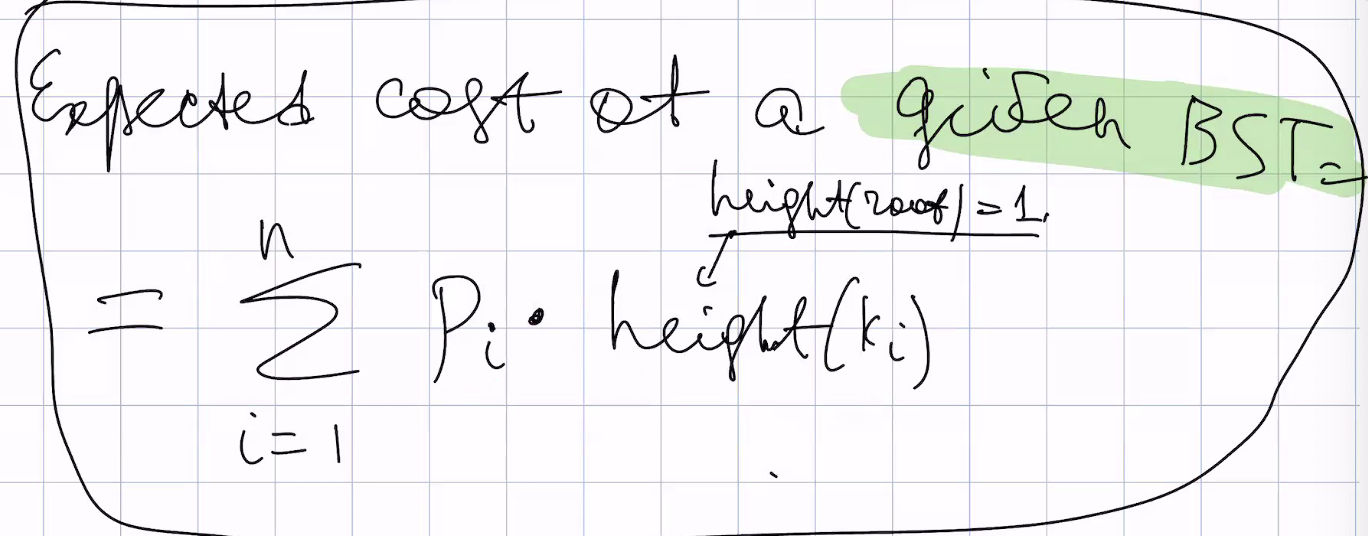 Expected cost of a given BST =
height(root) = 1.
= n ∑ i = 1 Pi · height(ki)